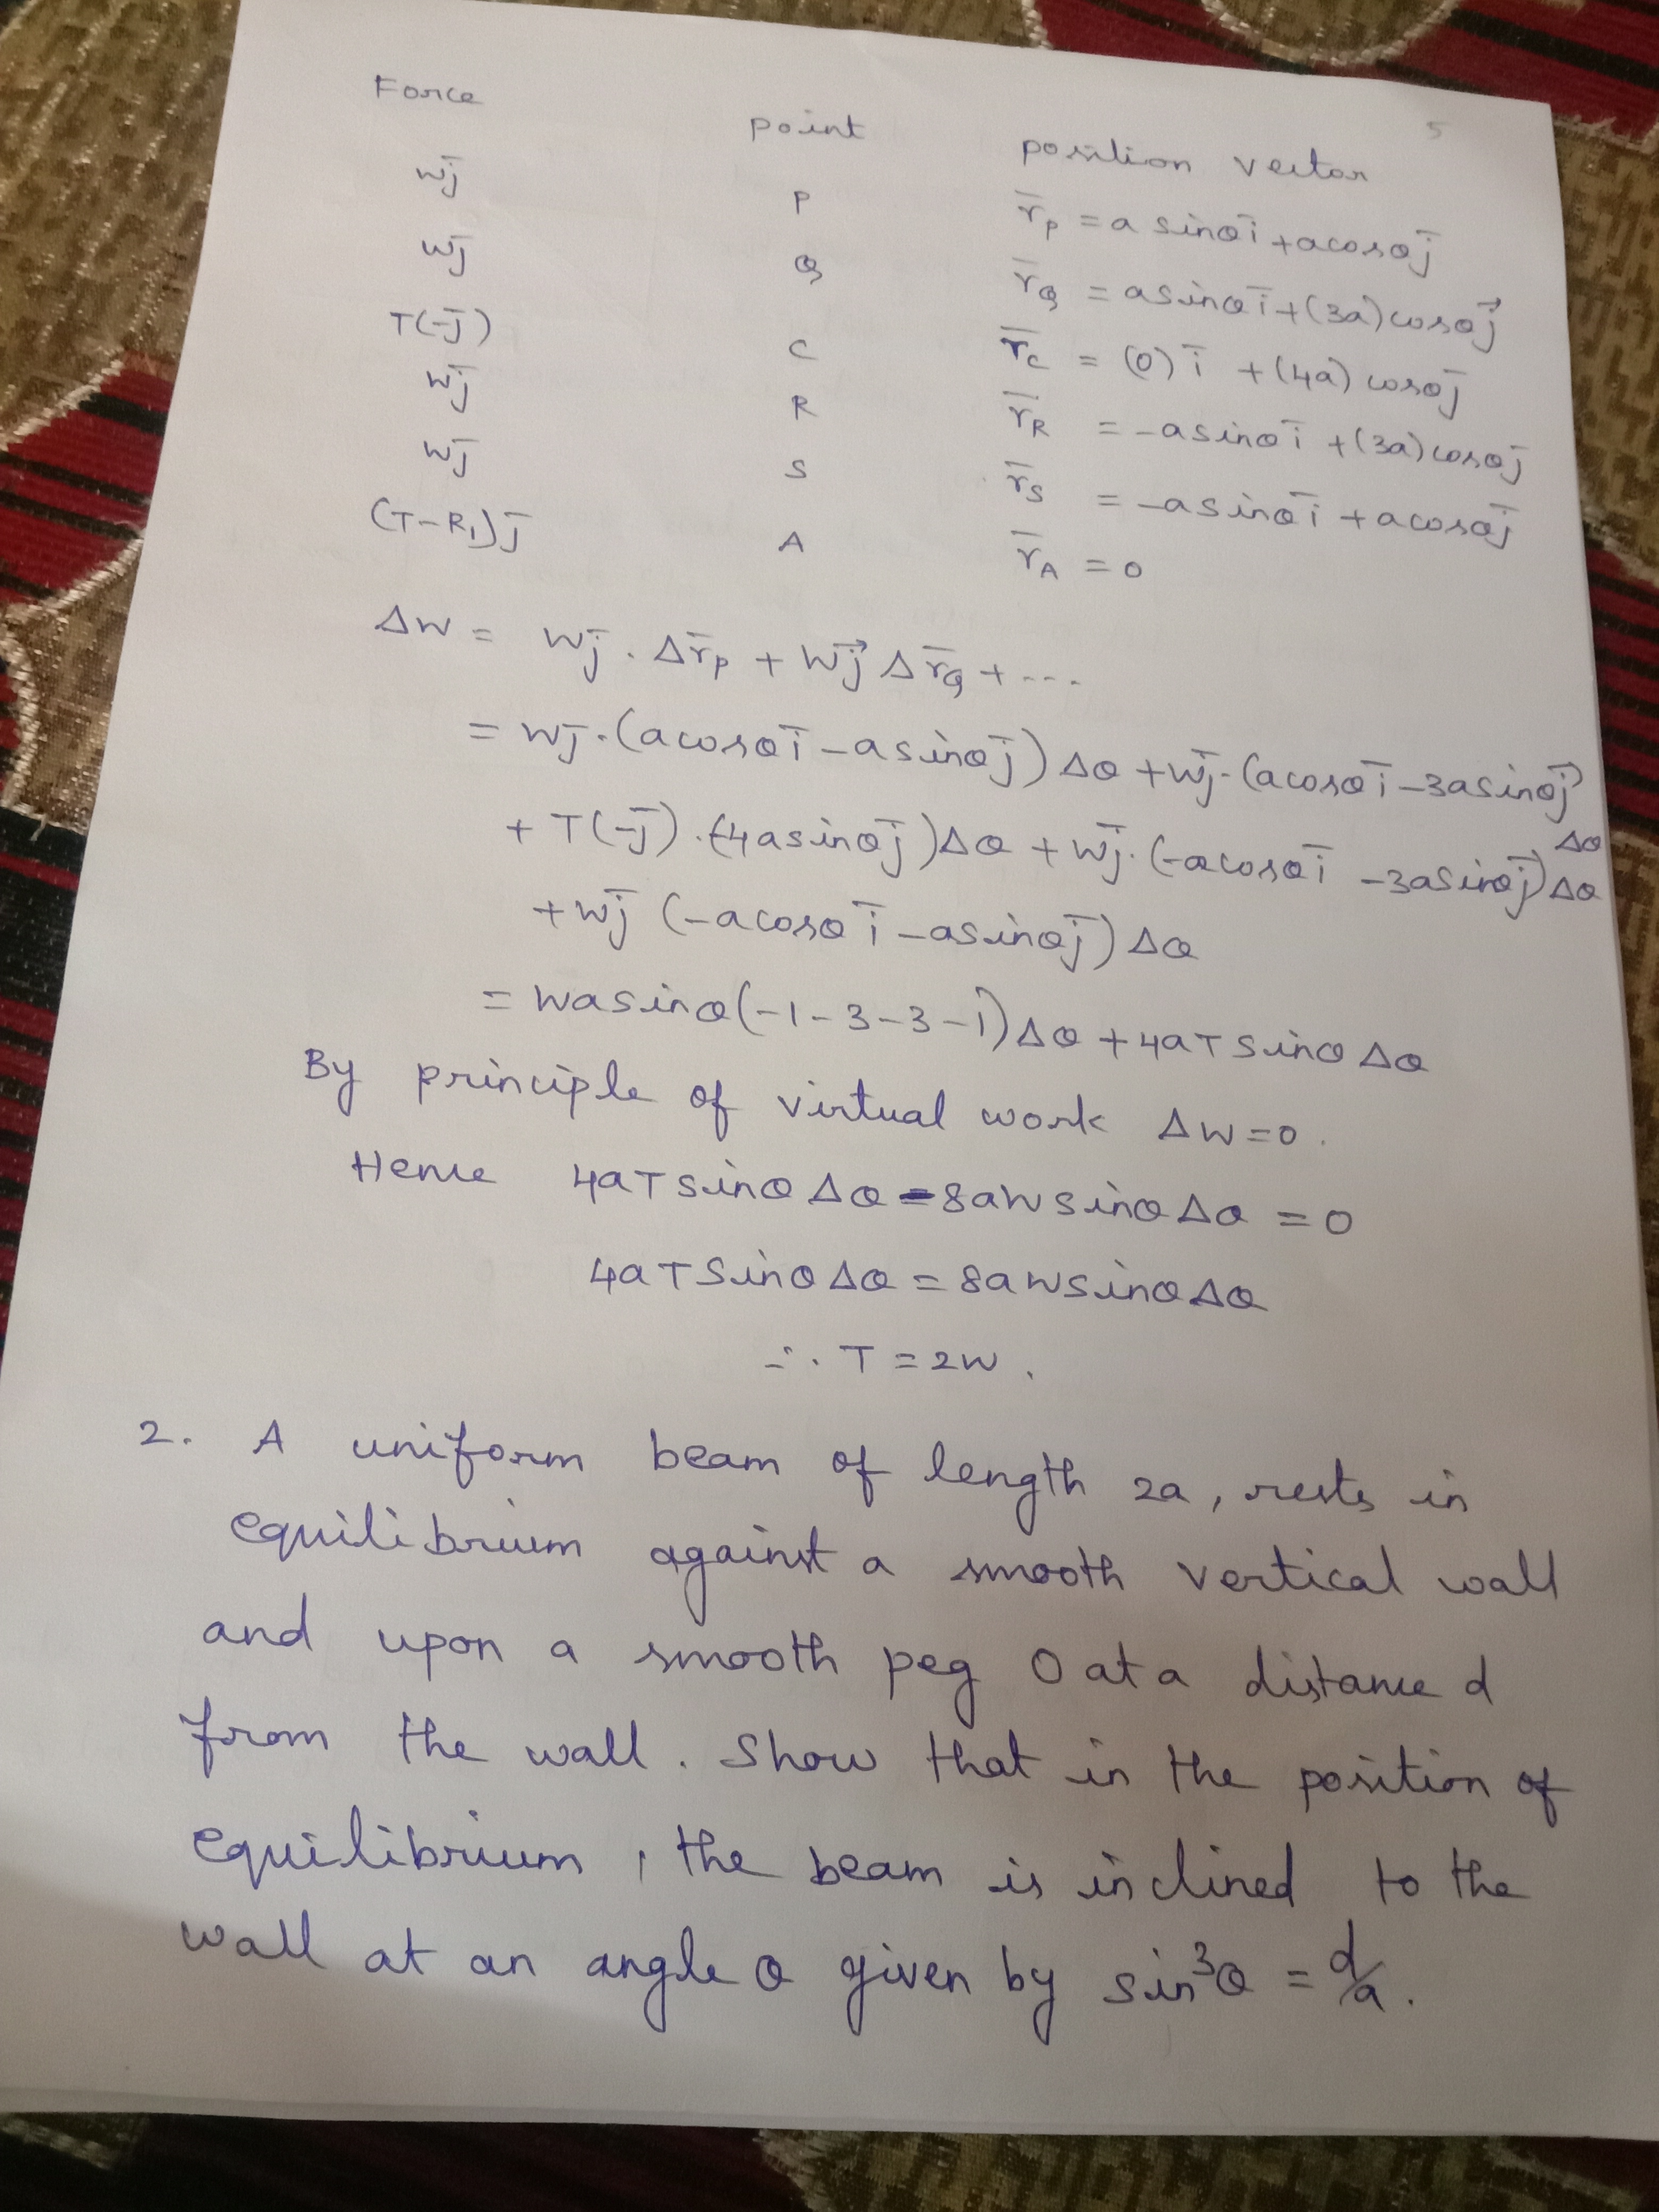 5
Force point position vector
Wj̄ P r̄_P = a sinθ ī + a cosθ j̄
Wj̄ Q r̄_Q = a sinθ ī + (3a) cosθ j⃗
T(-j̄) C r̄_C = (0) ī + (4a) cosθ j̄
Wj̄ R r̄_R = -a sinθ ī + (3a) cosθ j̄
Wj̄ S r̄_S = -a sinθ ī + a cosθ j̄
(T-R₁) j̄ A r̄_A = 0
ΔW = Wj̄ . Δr̄_P + Wj⃗ Δr̄_Q + ...
= Wj̄ . (a cosθ ī - a sinθ j̄) Δθ + Wj̄ . (a cosθ ī - 3a sinθ j̄) Δθ
+ T(-j̄) . (-4a sinθ j̄) Δθ + Wj̄ . (-a cosθ ī - 3a sinθ j̄) Δθ
+ Wj̄ (-a cosθ ī - a sinθ j̄) Δθ
= Wa sinθ (-1-3-3-1) Δθ + 4aT sinθ Δθ
By principle of virtual work ΔW = 0.
Hence 4aT sinθ Δθ - 8aW sinθ Δθ = 0
4aT sinθ Δθ = 8aW sinθ Δθ
∴ T = 2W.
2. A uniform beam of length 2a, rests in
equilibrium against a smooth vertical wall
and upon a smooth peg O at a distance d
from the wall. Show that in the position of
equilibrium, the beam is inclined to the
wall at an angle θ given by sin³θ = d/a.